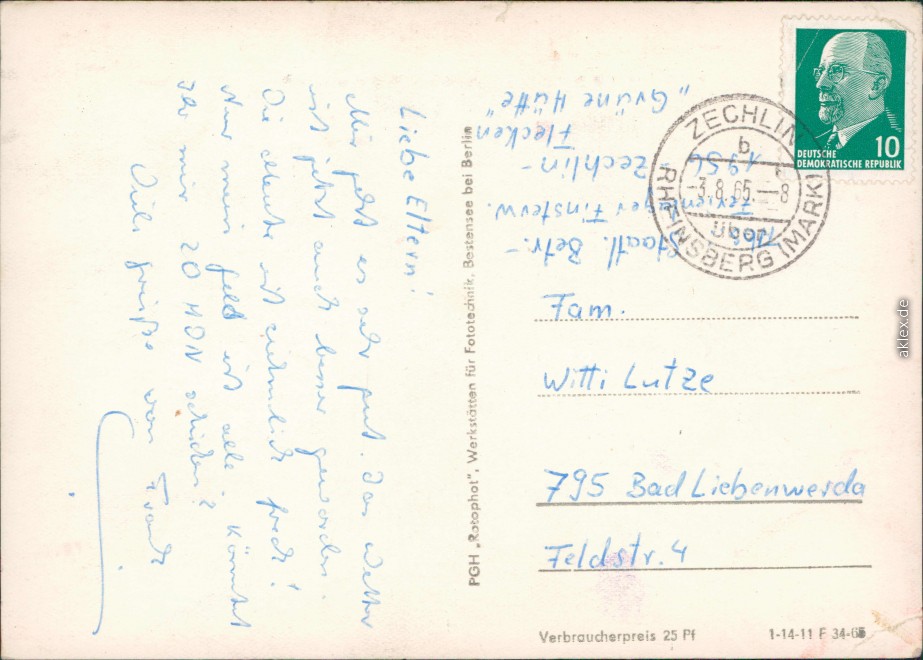 Liebe Eltern!
Mir geht es sehr gut. Das Wetter
ist jetzt auch besser geworden.
Die Leute ist ziemlich frech!
Nur mein Geld ist alle. Könntet
Ihr mir 20 MDN schicken?
Viele Grüße von Frank
PGH „Rotophot", Werkstätten für Fototechnik, Bestensee bei Berlin
Staatl. Betr.-
Ferienlager Finsterw.
1954
Zechlin-
Flecken
„Grüne Hütte"
ZECHLIN
b
-3.8.65.--8
über
RHEINSBERG (MARK)
10
DEUTSCHE
DEMOKRATISCHE REPUBLIK
Fam.
Willi Lutze
795 Bad Liebenwerda
Feldstr. 4
Verbraucherpreis 25 Pf
1-14-11 F 34-65
aklex.de